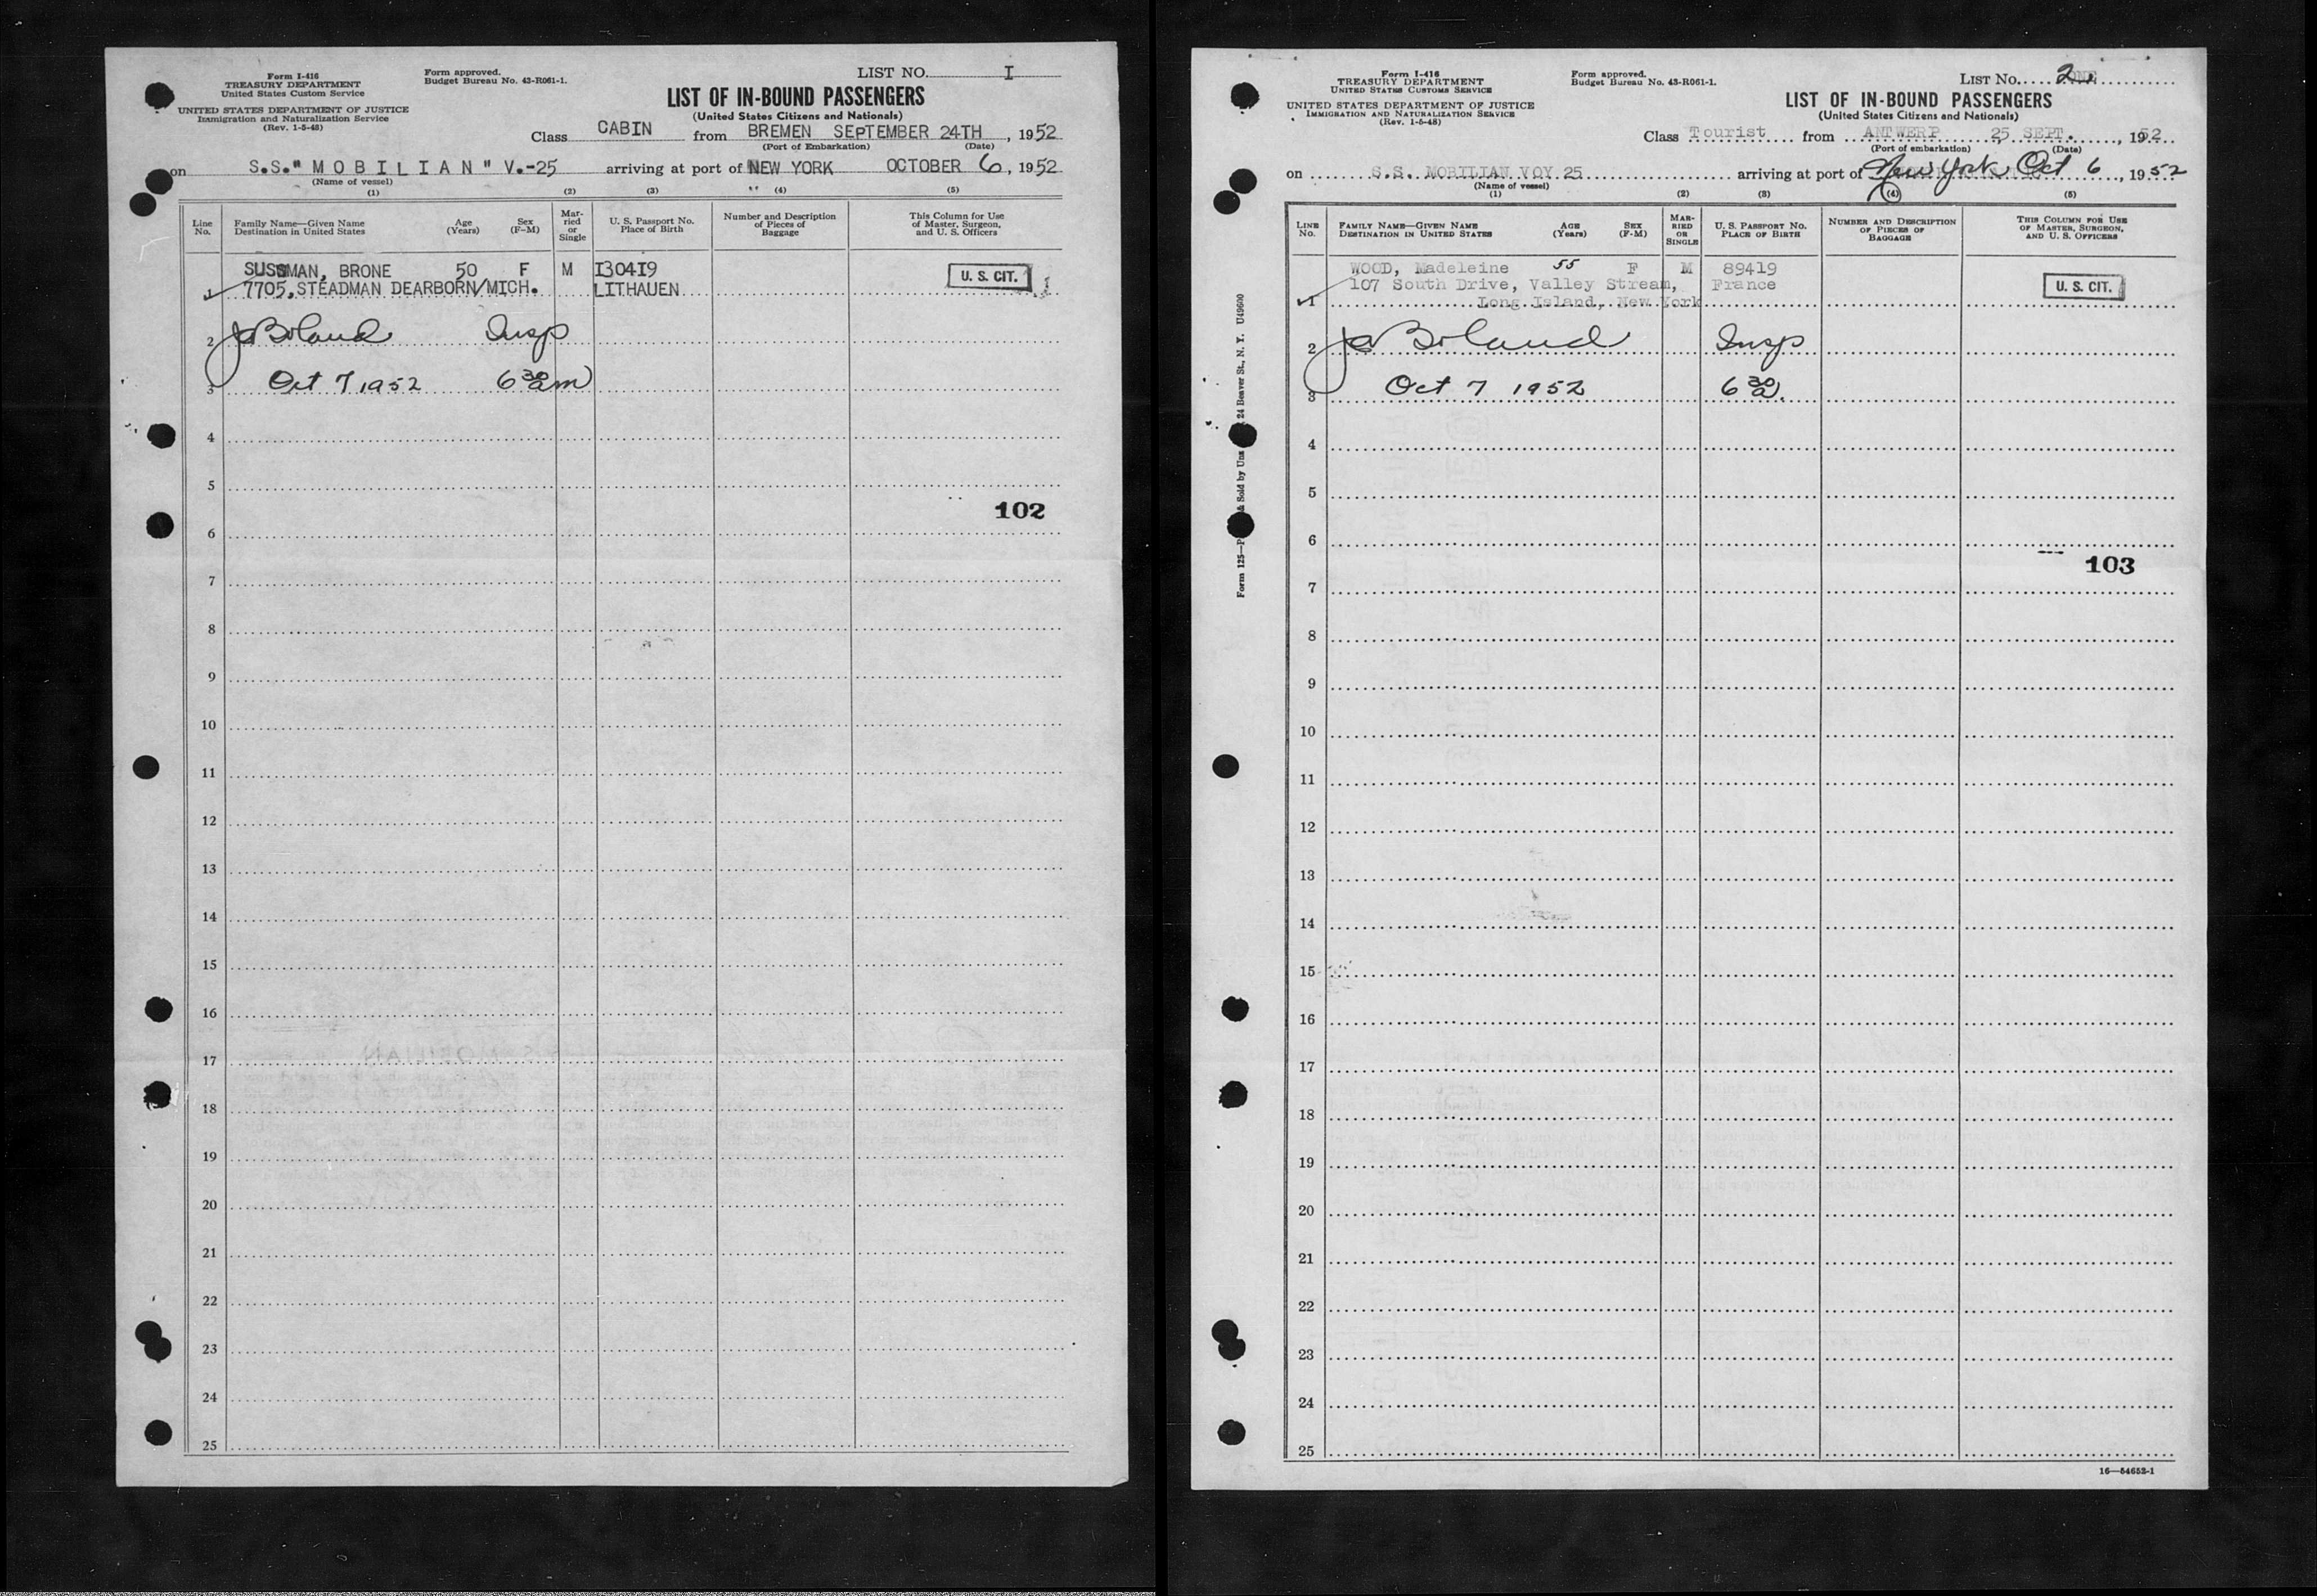 Form I-416
TREASURY DEPARTMENT
United States Custom Service
UNITED STATES DEPARTMENT OF JUSTICE
Immigration and Naturalization Service
(Rev. 1-5-48)
Form approved.
Budget Bureau No. 43-R061-1.
LIST NO. I
LIST OF IN-BOUND PASSENGERS
(United States Citizens and Nationals)
Class CABIN from BREMEN SEPTEMBER 24TH, 1952
(Port of Embarkation) (Date)
on S.S." M O B I L I A N " V.-25 arriving at port of NEW YORK OCTOBER 6, 1952
(Name of vessel)
(1) (2) (3) (4) (5)
Line No. Family Name—Given Name Destination in United States Age (Years) Sex (F-M) Mar-ried or Single U. S. Passport No. Place of Birth Number and Description of Pieces of Baggage This Column for Use of Master, Surgeon, and U. S. Officers
SUSSMAN, BRONE 50 F M I304I9 U. S. CIT.
1 7705. STEADMAN DEARBORN/MICH. LITHAUEN
2 Boland Insp
3 Oct 7 1952 6 30 am
4
5
102
6
7
8
9
10
11
12
13
14
15
16
17
18
19
20
21
22
23
24
25
Form I-416
TREASURY DEPARTMENT
UNITED STATES CUSTOMS SERVICE
UNITED STATES DEPARTMENT OF JUSTICE
IMMIGRATION AND NATURALIZATION SERVICE
(Rev. 1-5-48)
Form approved.
Budget Bureau No. 43-R061-1.
LIST No. 2
LIST OF IN-BOUND PASSENGERS
(United States Citizens and Nationals)
Class Tourist from ANTWERP 25 SEPT., 1952
(Port of embarkation) (Date)
on S.S. MOBILIAN VOY 25 arriving at port of New York Oct 6, 1952
(Name of vessel)
(1) (2) (3) (4) (5)
LINE No. FAMILY NAME—GIVEN NAME DESTINATION IN UNITED STATES AGE (Years) SEX (F-M) MAR-RIED OR SINGLE U. S. PASSPORT No. PLACE OF BIRTH NUMBER AND DESCRIPTION OF PIECES OF BAGGAGE THIS COLUMN FOR USE OF MASTER, SURGEON, AND U. S. OFFICERS
WOOD, Madeleine 55 F M 89419
107 South Drive, Valley Stream, France U. S. CIT.
1 Long Island, New York
2 Boland Insp
3 Oct 7 1952 6 30 a.
4
5
6
103
7
8
9
10
11
12
13
14
15
16
17
18
19
20
21
22
23
24
25
16—54652-1
Form 125—P & Sold by 24 Beaver St., N. Y. U49600